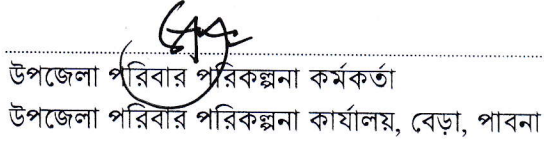 উপজেলা পরিবার পরিকল্পনা কর্মকর্তা
উপজেলা পরিবার পরিকল্পনা কার্যালয়, বেড়া, পাবনা